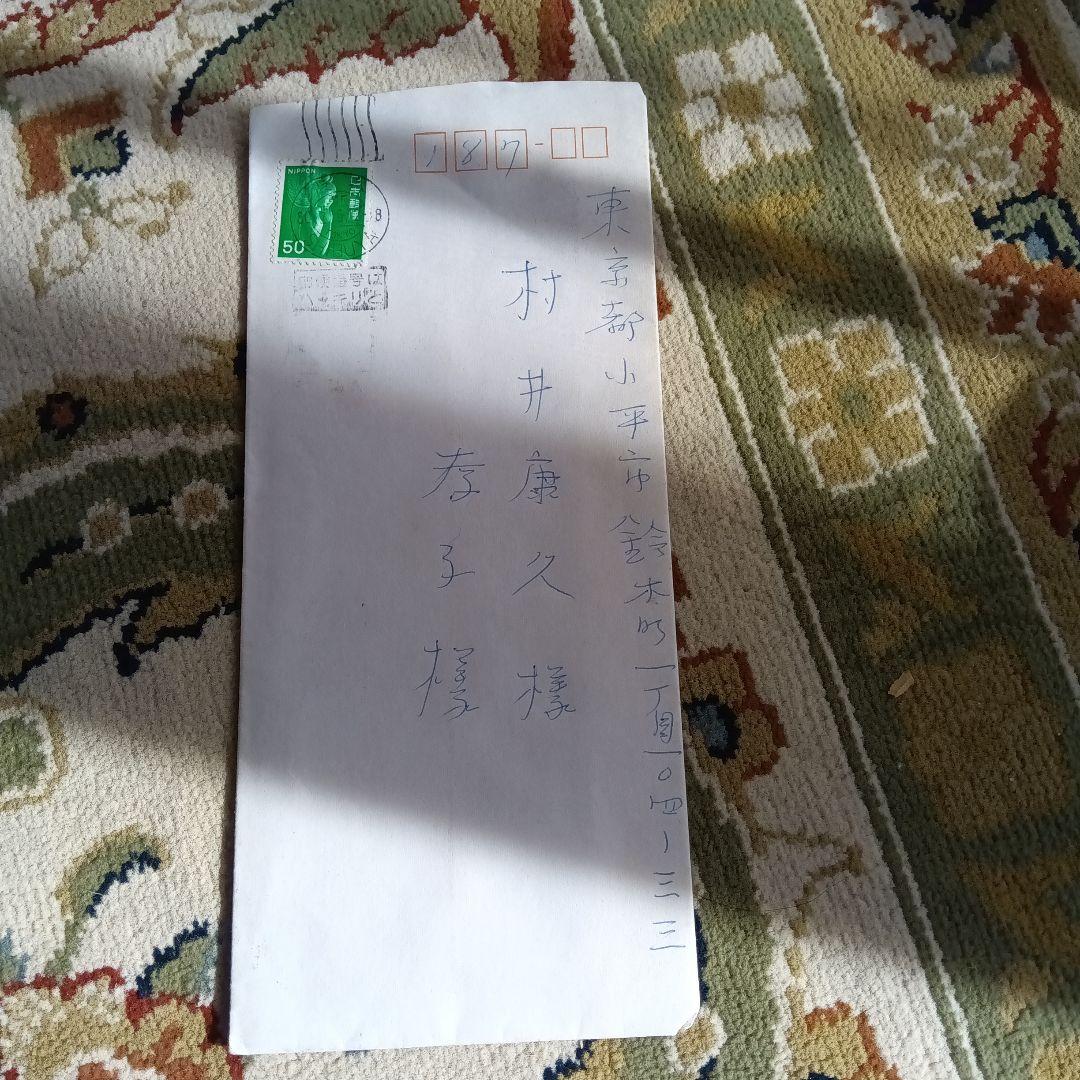 187-
東京都小平市鈴木町一丁目一〇四ー三三
村井康久様
孝子様
NIPPON
日本郵便
50
郵便番号は